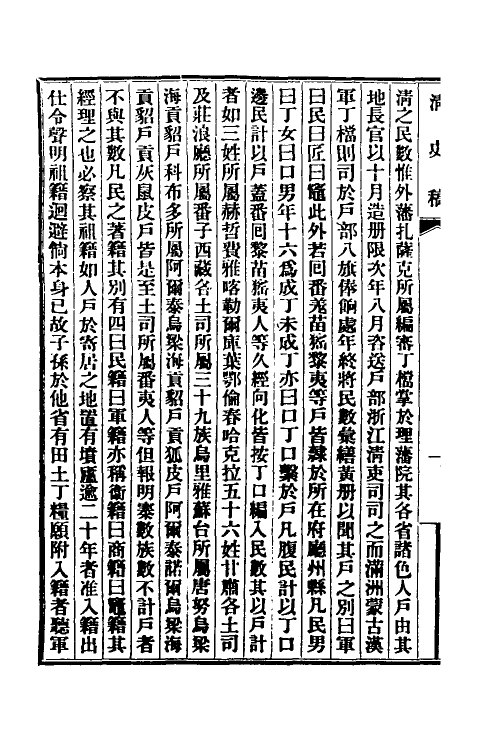 清史稿
清之民數惟外藩扎薩克所屬編審丁檔掌於理藩院其各省諸色人戶由其
地長官以十月造册限次年八月咨送戶部浙江清吏司司之而滿洲蒙古漢
軍丁檔則司於戶部八旗俸餉處年終將民數彙繕黃册以聞其戶之別曰軍
曰民曰匠曰竈此外若回番羌苗猺黎夷等戶皆隸於所在府廳州縣凡民男
曰丁女曰口男年十六爲成丁未成丁亦曰口丁口繫於戶凡腹民計以丁口
邊民計以戶蓋番回黎苗猺夷人等久經向化皆按丁口編入民數其以戶計
者如三姓所屬赫哲費雅喀勒爾庫葉鄂倫春哈克拉五十六姓甘肅各土司
及莊浪廳所屬番子西藏各土司所屬三十九族烏里雅蘇台所屬唐努烏梁
海貢貂戶科布多所屬阿爾泰烏梁海貢貂戶貢狐皮戶阿爾泰諾爾烏梁海
貢貂戶貢灰鼠皮戶皆是至土司所屬番夷人等但報明寨數族數不計戶者
不與其數凡民之著籍其別有四曰民籍曰軍籍亦稱衞籍曰商籍曰竈籍其
經理之也必察其祖籍如人戶於寄居之地置有墳廬逾二十年者准入籍出
仕令聲明祖籍迴避倘本身已故子孫於他省有田土丁糧願附入籍者聽軍